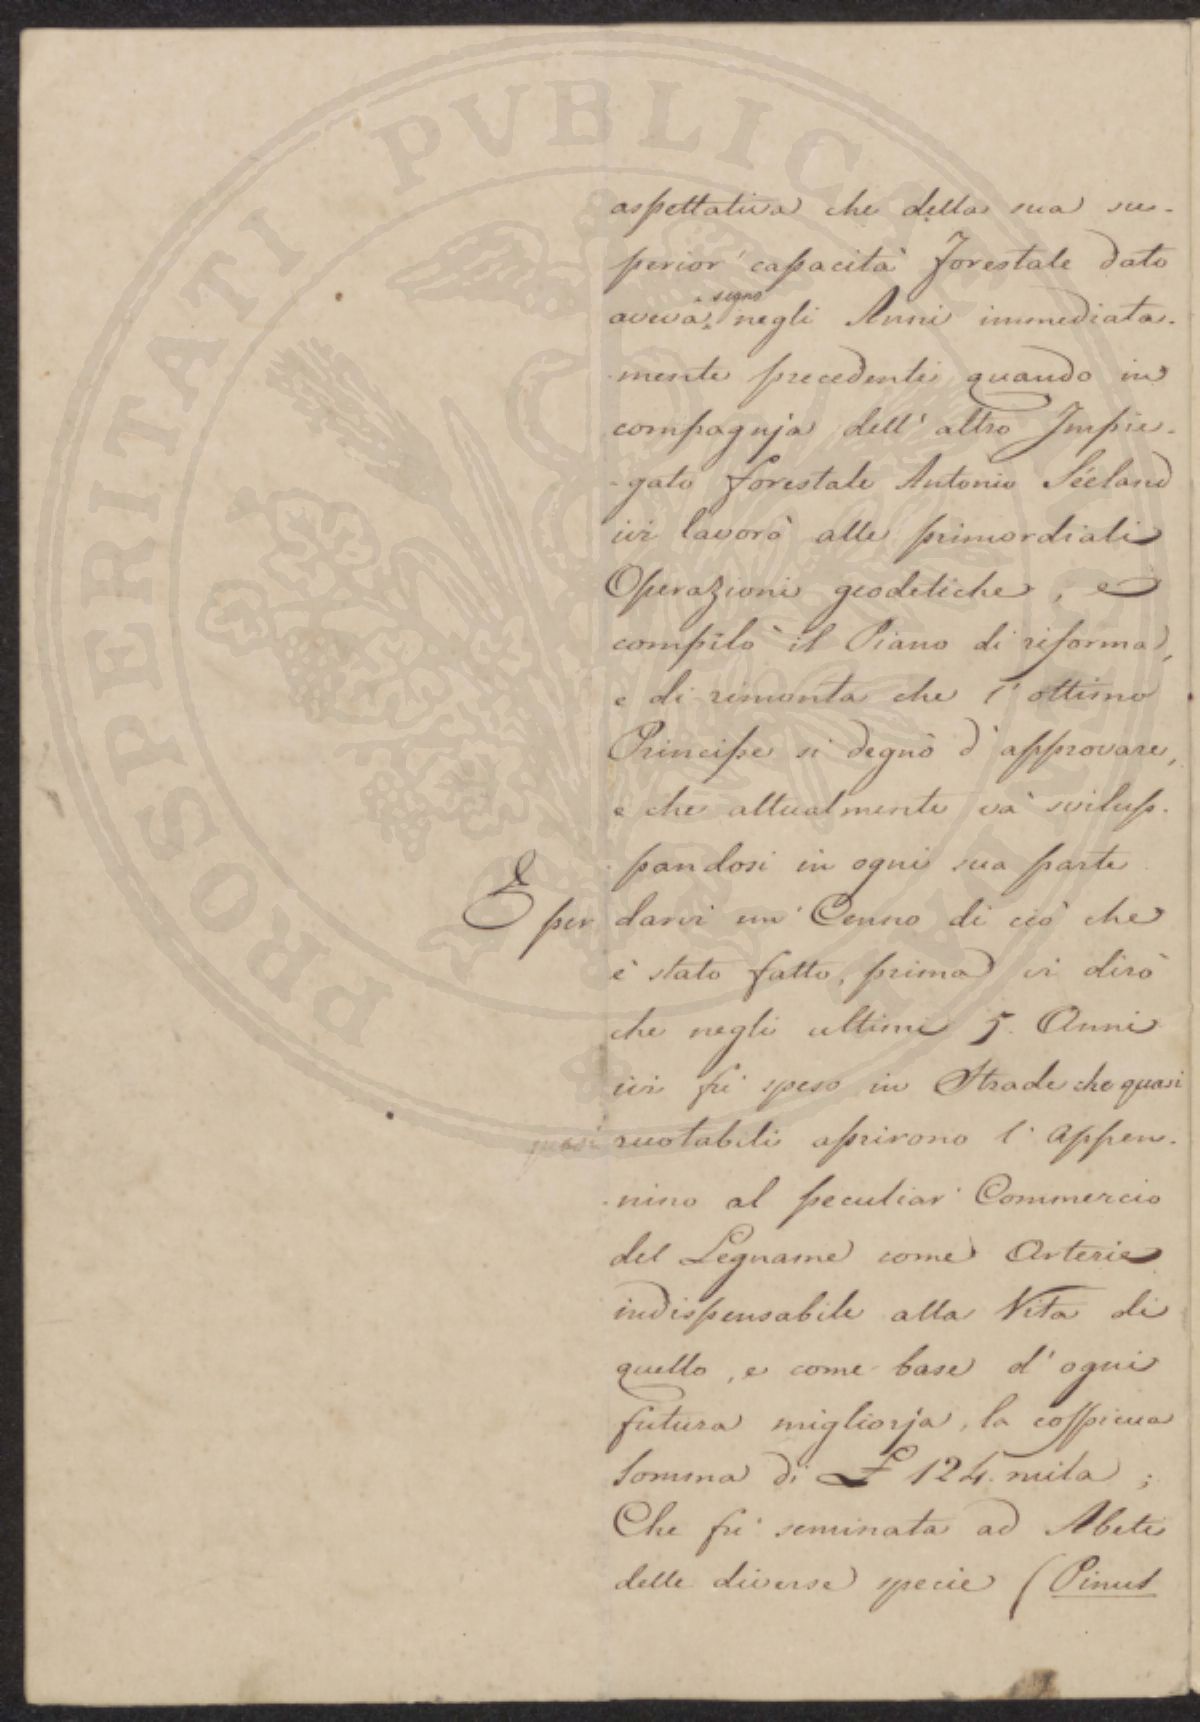 PROSPERITATI PVBLICAE AVGENDAE
aspettativa che della sua su-
perior' capacità Forestale dato
aveva segno negli Anni immediata-
-mente precedenti quando in
compagnja dell' altro Impie-
-gato forestale Antonio Séeland
ivi lavorò alle primordiali
Operazioni geodetiche, e
compilò il Piano di riforma,
e di rimonta che l' ottimo
Principe si degnò d' approvare,
e che attualmente và svilup-
-pandosi in ogni sua parte
E per darvi un' Cenno di ciò che
è stato fatto, prima vi dirò
che negli ultimi 5. Anni
ivi fù speso in Strade che quasi
quasi ruotabili aprirono l' Appen-
-nino al peculiar' Commercio
del Legname come Arterie
indispensabile alla Vita di
quello, e come base d' ogni
futura migliorja, la cospicua
Somma di £ 124. mila ;
Che fù seminata ad Abeti
delle diverse specie (Pinus